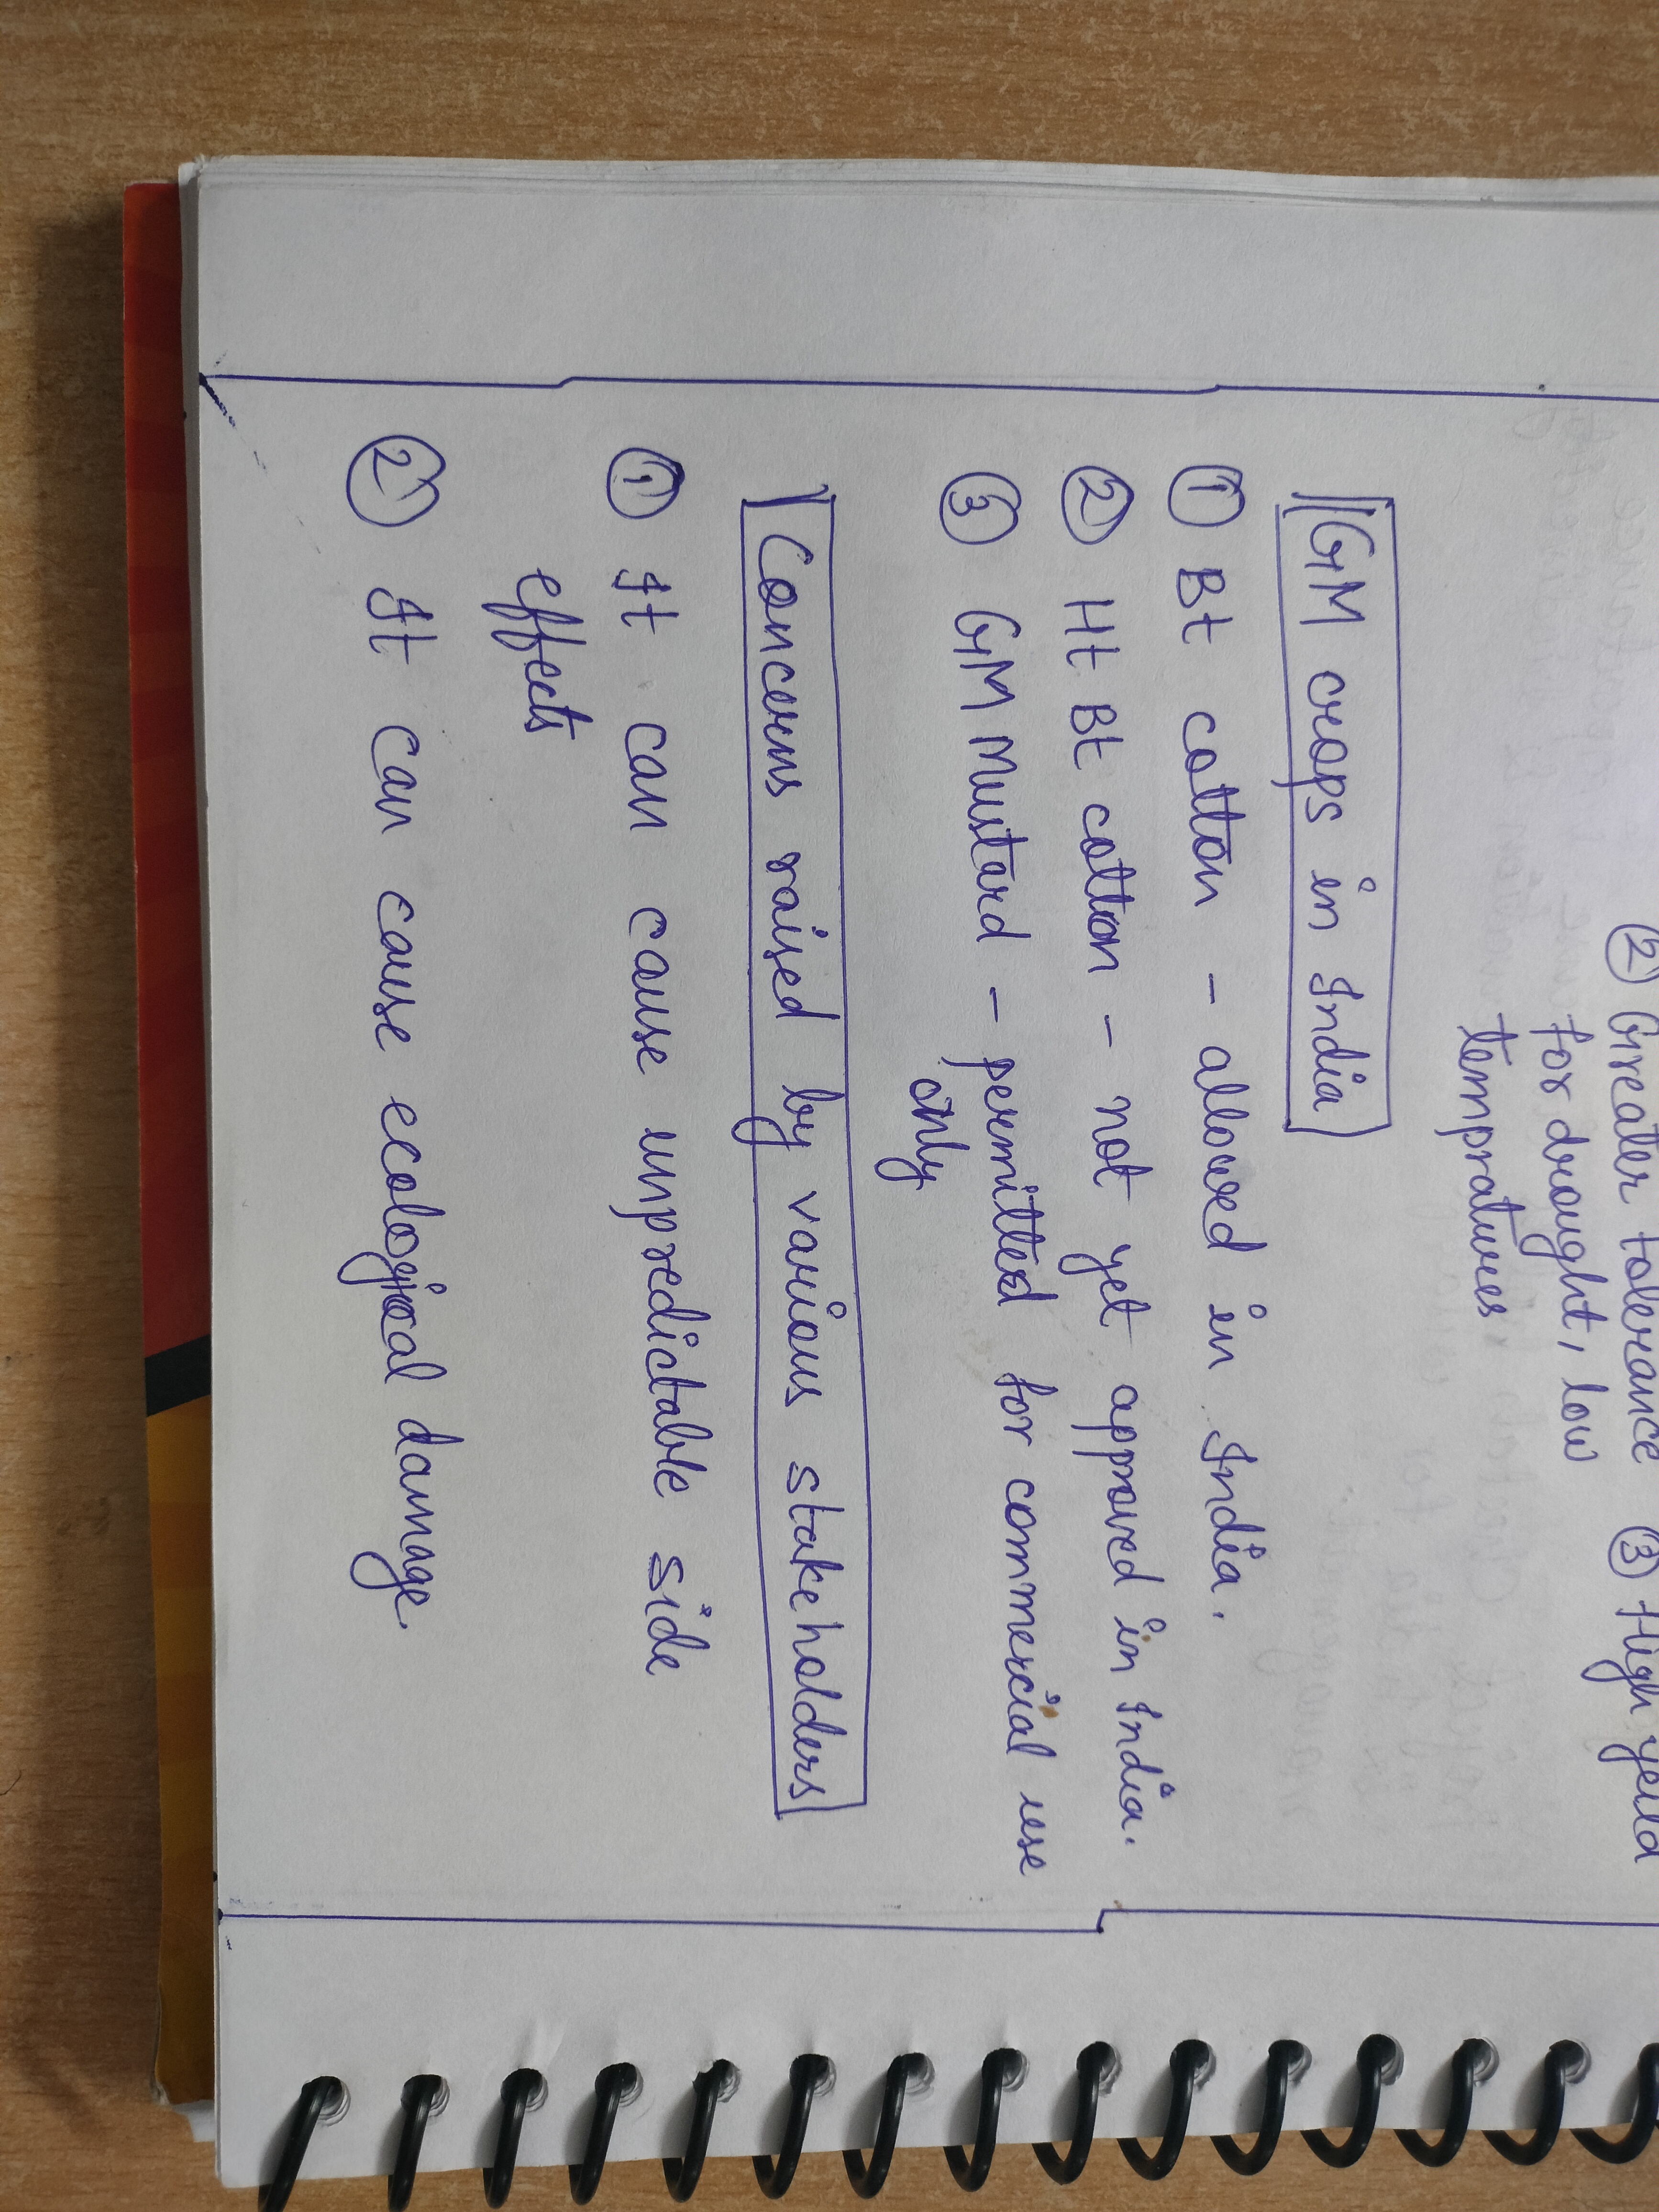 ② Greater tolerance ③ High yeild
for drought, low
tempratures
GM crops in India
① Bt cotton - allowed in India.
② Ht Bt cotton - not yet approved in India.
③ GM Mustard - permitted for commercial use
only
Concerns raised by various stakeholders
① It can cause unpredictable side
effects
② It can cause ecological damage.